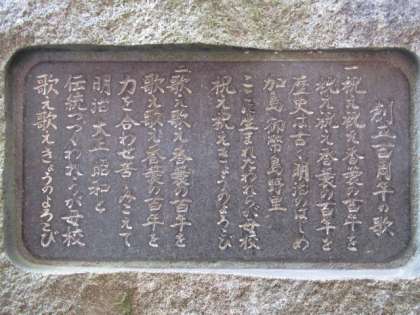 創立百周年の歌
一 祝え祝え香簑の百年を
祝え祝え香簑の百年を
歴史は古く明治のはじめ
加島 御幣島 野里
ここに生まれわれらが母校
祝え祝えきょうのよろこび
二 歌え歌え香簑の百年を
歌え歌え香簑の百年を
力を合わせ苦しみこえて
明治 大正 昭和と
伝統つづくわれらが母校
歌え歌えきょうのよろこび